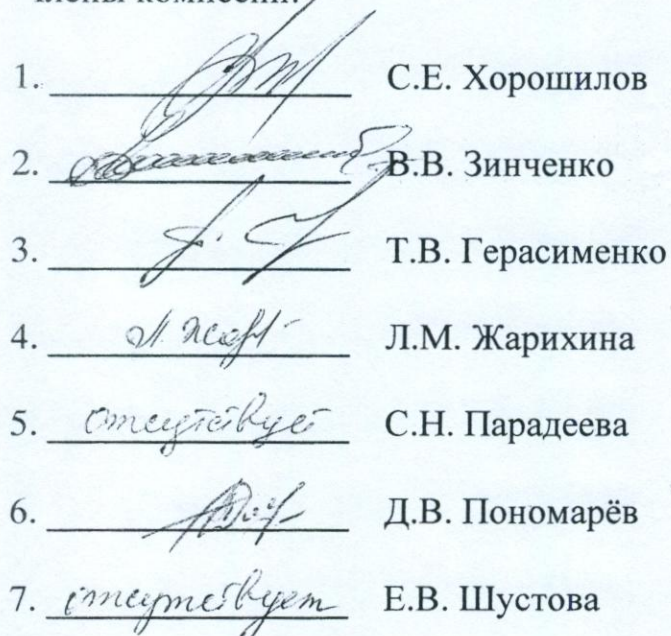 члены комиссии:
1. С.Е. Хорошилов
2. В.В. Зинченко
3. Т.В. Герасименко
4. Л. Жар Л.М. Жарихина
5. отсутствует С.Н. Парадеева
6. Д.В. Пономарёв
7. отсутствует Е.В. Шустова